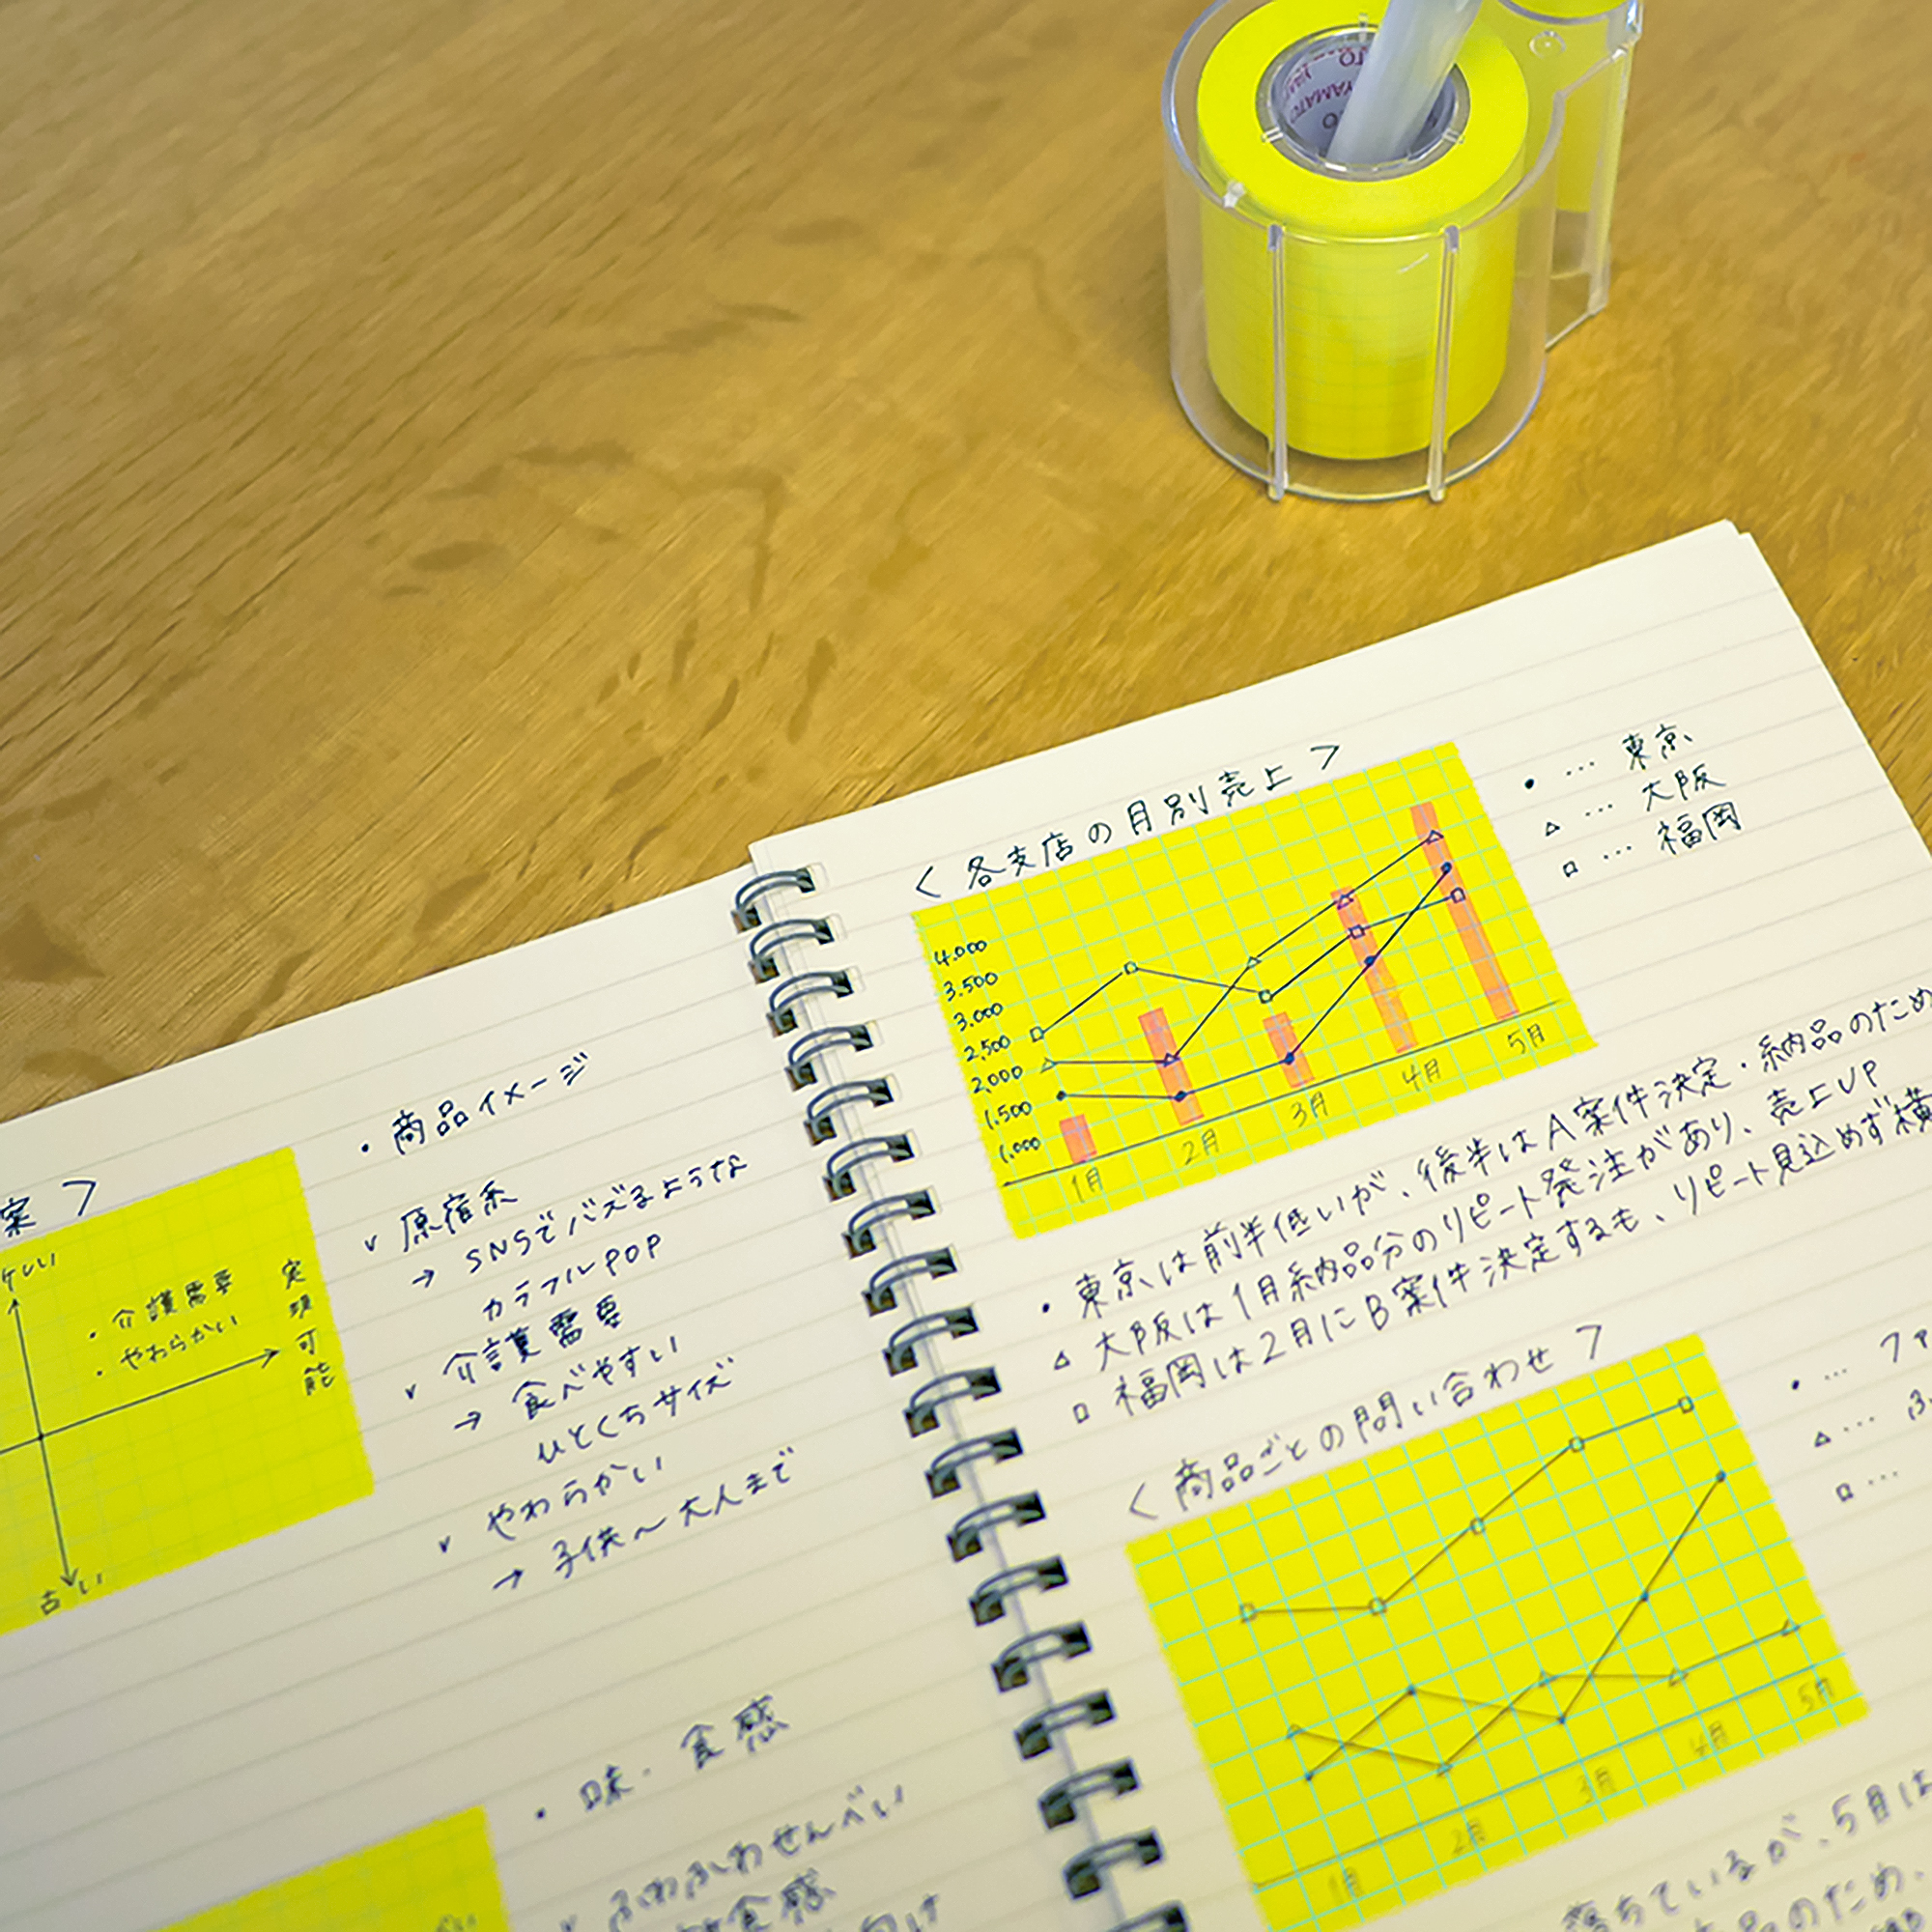 YAMATO
案 〉
・介護需要
・やわらかい
実現可能
古い
・商品イメージ
v 原宿系
→ SNSでバズるような
カラフルPOP
v 介護需要
→ 食べやすい
ひとくちサイズ
v やわらかい
→ 子供〜大人まで
・味・食感
ふわふわせんべい
食感
向け
〈 各支店の月別売上 〉
• … 東京
△ … 大阪
□ … 福岡
4.000
3.500
3.000
2,500
2,000
1,500
1,000
1月 2月 3月 4月 5月
• 東京は前半低いが、後半はA案件決定・納品のため
△ 大阪は1月納品分のリピート発注があり、売上UP
□ 福岡は2月にB案件決定するも、リピート見込めず横
〈 商品ごとの問い合わせ 〉
• …
△ …
□ …
1月 2月 3月 4月 5月
落ちているが、5月は
品のため、